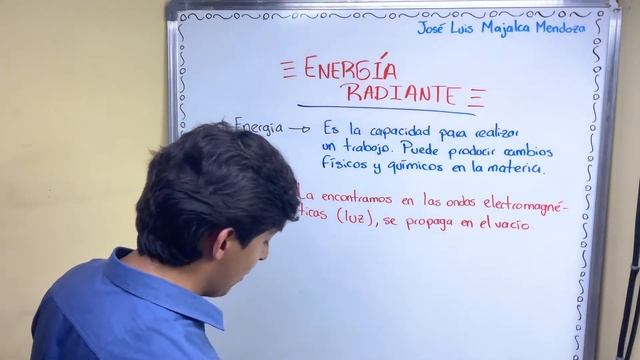 José Luis Majalca Mendoza
ENERGÍA
RADIANTE
Energía → Es la capacidad para realizar
un trabajo. Puede producir cambios
físicos y químicos en la materia.
La encontramos en las ondas electromagné-
ticas (luz), se propaga en el vacío